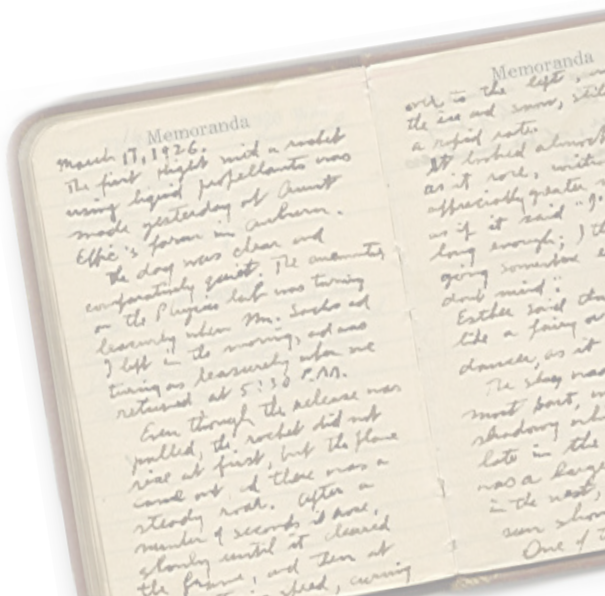 Memoranda
March 17, 1926.
The first flight with a rocket
using liquid propellants was
made yesterday at Aunt
Effie's farm in Auburn.
The day was clear and
comparatively quiet. The anemometer
on the Physics lab was turning
leisurely when Mr. Sachs and
I left in the morning, and was
turning as leisurely when we
returned at 5:30 P.M.
Even though the release was
pulled, the rocket did not
rise at first, but the flame
came out and there was a
steady roar. After a
number of seconds it rose,
slowly until it cleared
the frame, and then at
speed, curving
Memoranda
over to the left,
the ice and snow, still
a rapid rate.
It looked almost
as it rose, with
appreciably greater
as if it said "I
long enough; I
going somewhere
don't mind".
Esther said that
like a fairy or
dancer, as it
The sky was
most part, w
shadowy wh
late in the
was a large
in the west,
sun sho
One of